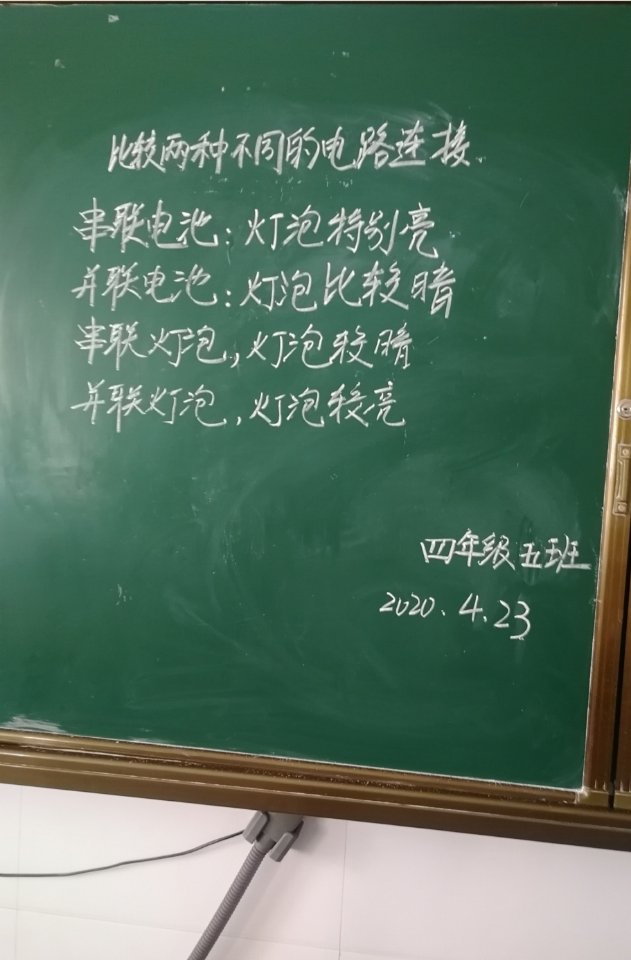 比较两种不同的电路连接
串联电池：灯泡特别亮
并联电池：灯泡比较暗
串联灯泡，灯泡较暗
并联灯泡，灯泡较亮
四年级五班
2020.4.23